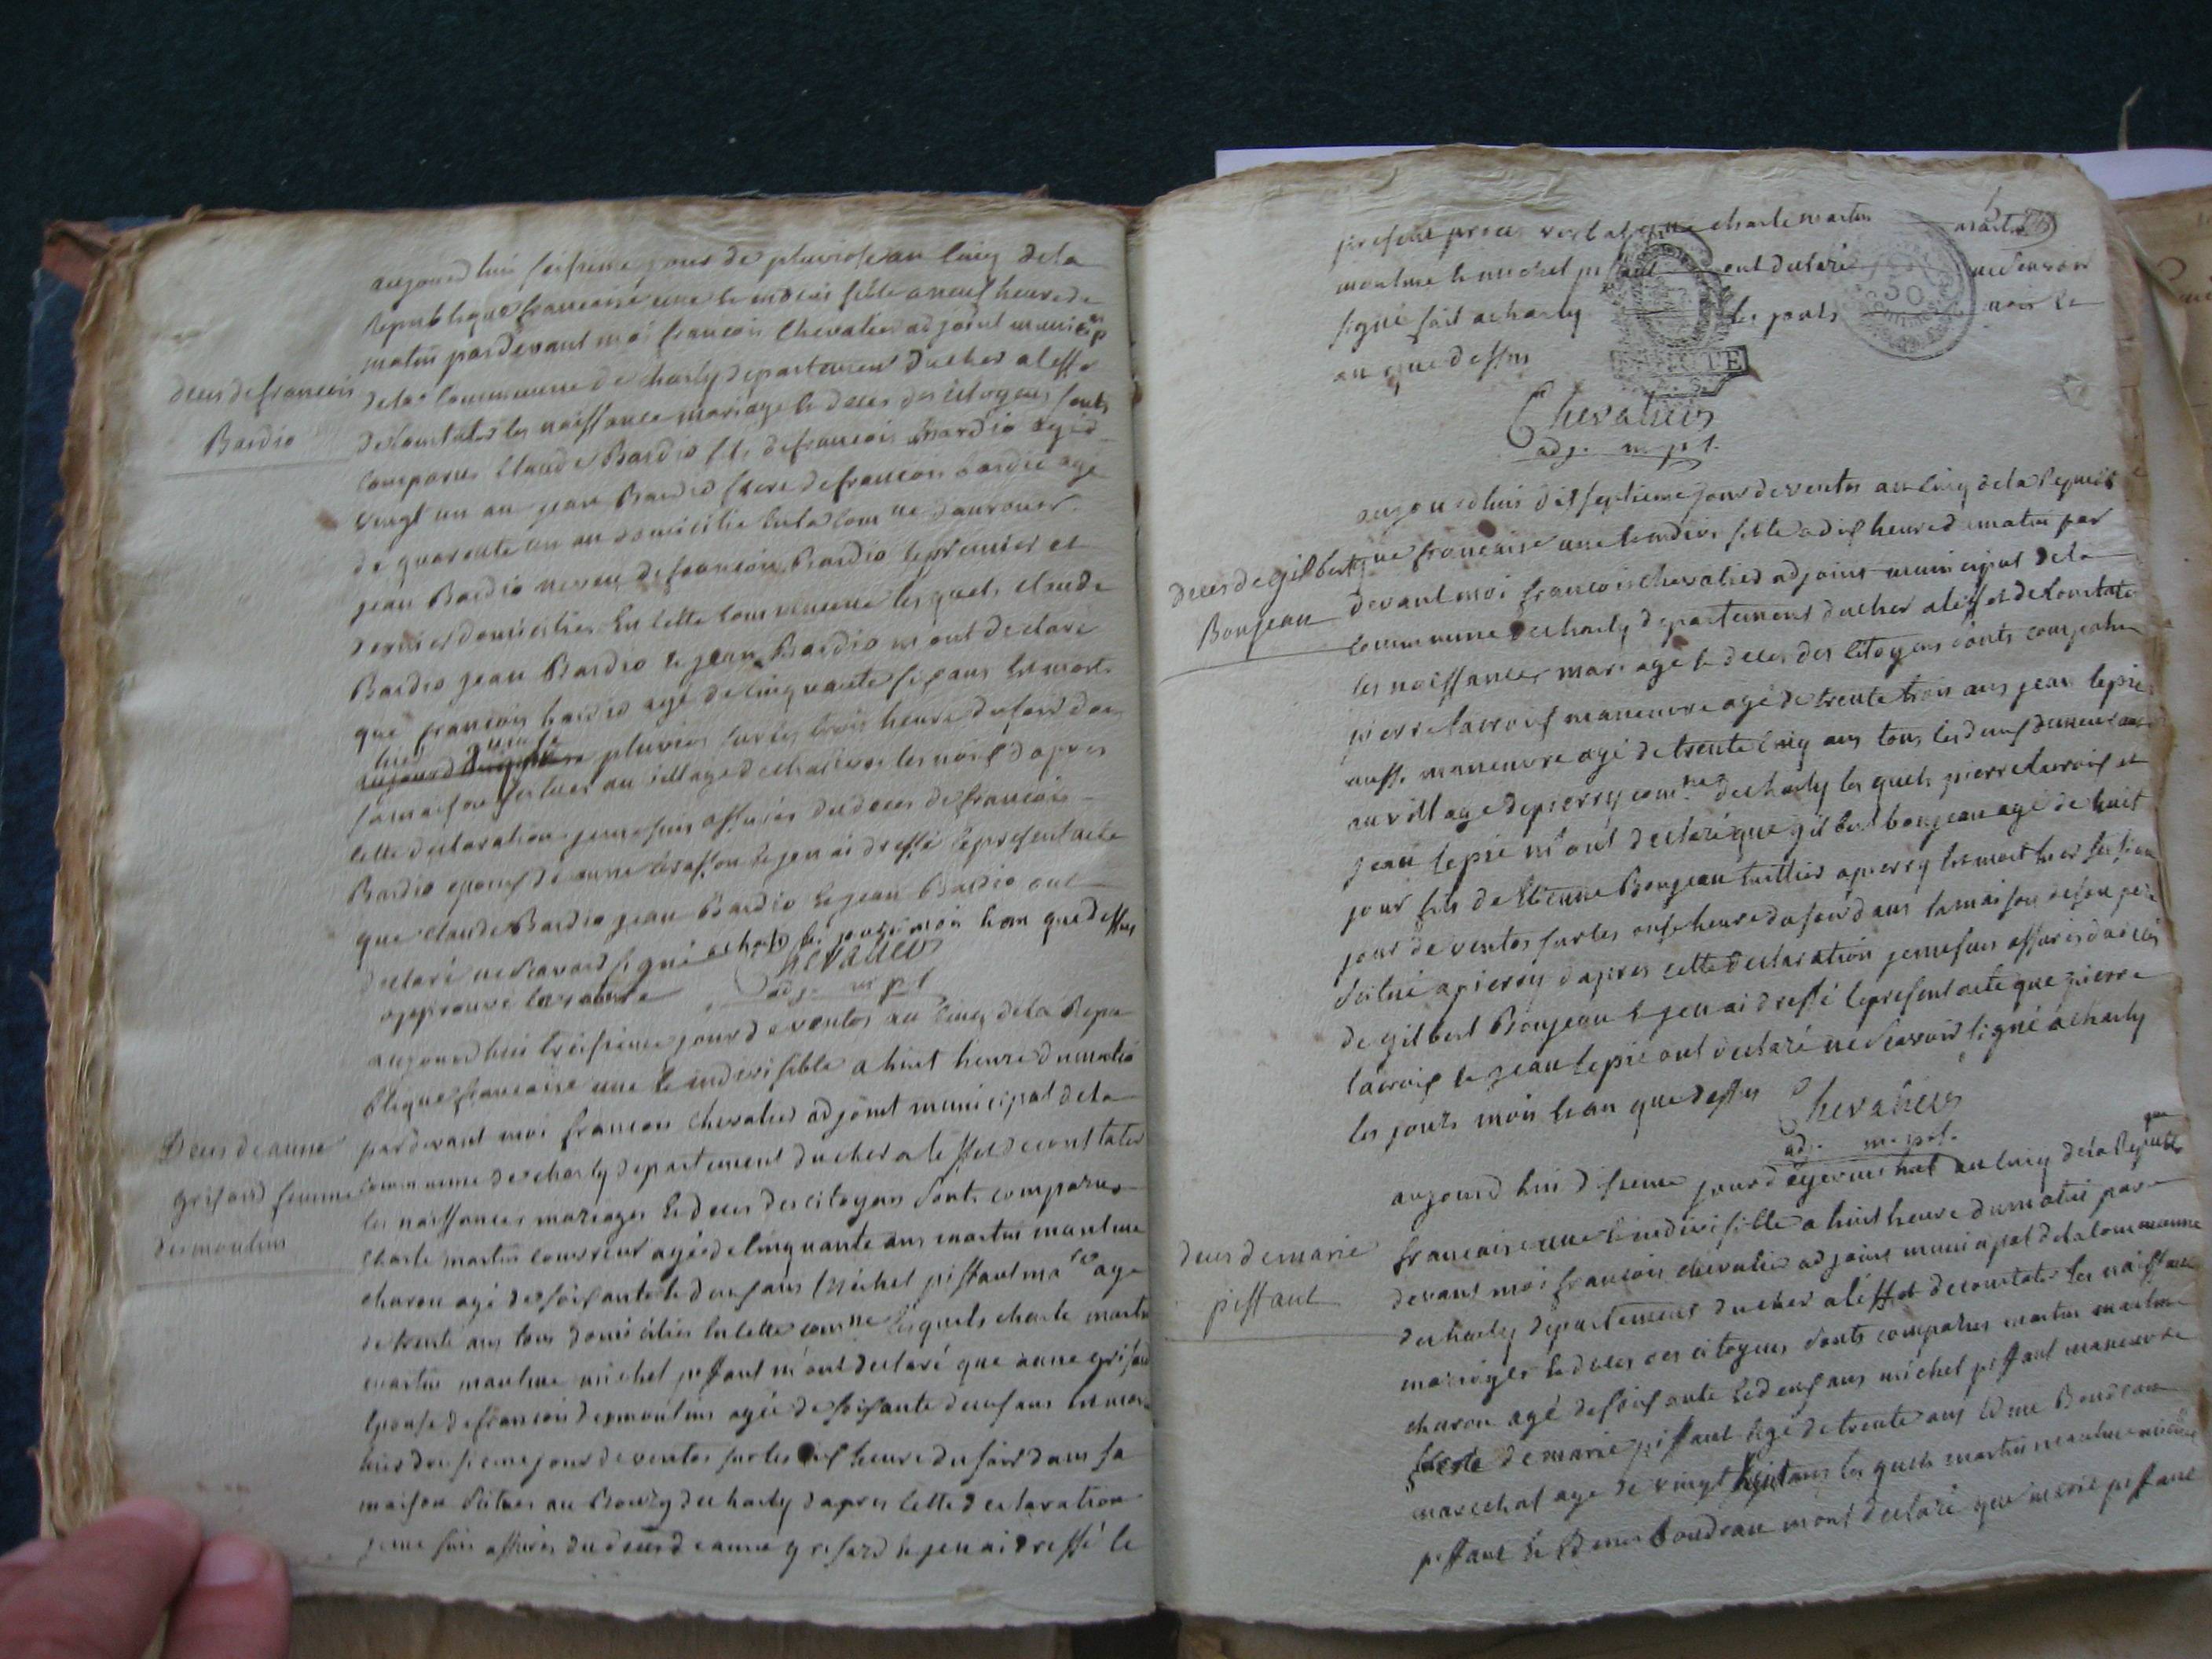 aujourdhui seisieme jour de pluviose an cinq dela
Republique francaise une & indivisible a neuf heure de
matin pardevant moi francois Chevalier adjoint municip
dela Commune de charly departement du cher a leffe
deces de francois
Bardio
de Constater les naissance mariage & deces des citoyens sonts
comparus Claude Bardio fils de francois Bardio agé de
vingt un an jean Bardio frere de francois bardio agé
de quarente un an domicilié en la com ne dourouer
jean Bardio neveu de francois Bardio le premier et
dernier domicilies en cette commune lesquels claude
Bardio jean Bardio & jean Bardio mont declaré
que francois bardio agé de cinquante six ans est mort
hier quinse
pluviose sur les trois heure du soir dans
sa maison scituer au villages de
cette declaration je me suis assurés du deces de francois
Bardio epoux de anne & jen ai dressé le present acte
que claude Bardio jean Bardio & jean Bardio ont
declaré ne scavoir signé a charly les jours mois & an que dessus
approuvé la rature
Chevalier
adj. m pl
aujourdhui treisieme jour de ventos an cinq dela Repu
blique francaise une & indivisible a huit heure du matin
pardevant moi francois chevalier adjoint municipal dela
Deces de anne
grisard femme
desmoulins
commune de charly departement du cher a leffet de constater
les naissances mariages & deces des citoyens sonts comparus
charle martin couvreur agé de cinquante ans martin manlme
charon agé de soisante & deux ans Michel pissant ma agé
de trente ans tous domicilies en cette com ne lesquels charle martin
martin manlme michel pissant m'ont declaré que anne grisard
épouse de francois desmoulins agée de soisante deux ans est morte
hier dousieme jour de ventos sur les six heure du soir dans sa
maison scitues au Bourg de charly dapres cette declaration
je me suis assurés du deces de anne grisard & jen ai dressé le
present proces verbal que charle martin martin
manlme & michel pissant ont declaré ne scavoir
signé fait a charly les jours mois &
an que dessus
Chevalier
adj. m pl.
aujourdhuis dix septieme jour de ventos an cinq dela Republi
deces de gilbert
Bonjean
que francaise une & indivisible a dix heure du matin par
devant moi francois chevalier adjoint municipal dela
commune de charly departement du cher a leffet de constater
les naissances mariage & deces des citoyens sonts comparus
pierre lacroix maneuvre agé de trente trois ans jean lepié
aussi maneuvre agé de trente cinq ans tous les deux demeurant
au village de pierry com ne de charly les quels pierre lacroix et
jean lepié m'ont declaré que gilbert bonjean agé de huit
jour fils de Etienne Bonjean tuillier a pierry est mort hier seisieme
jour de ventos sur les onse heure du soir dans la maison de son pere
scitué a pierry dapres cette declaration je me suis assurés du deces
de gilbert Bonjean & jen ai dressé le present acte que pierre
lacroix & jean lepié ont declaré ne scavoir signé a charly
les jours mois & an que dessus
Chevalier
adj. m. pal.
aujourdhui disieme jour de germinal an cinq dela Republi que
deces de marie
pissant
francaise une & indivisible a huit heure du matin par
devant moi francois chevalier adjoint municipal dela commune
de charly departement du cher a leffet de constater les naissances
mariages & deces des citoyens sonts comparus martin manlme
charon agé de soisante & deux ans michel pissant maneuvre
de marie pissant agé de trente ans Edme Boudeau
marechal agé de vingt huit ans les quels martin manlme michel
pissant & Edme boudeau mont declaré que marie pissant